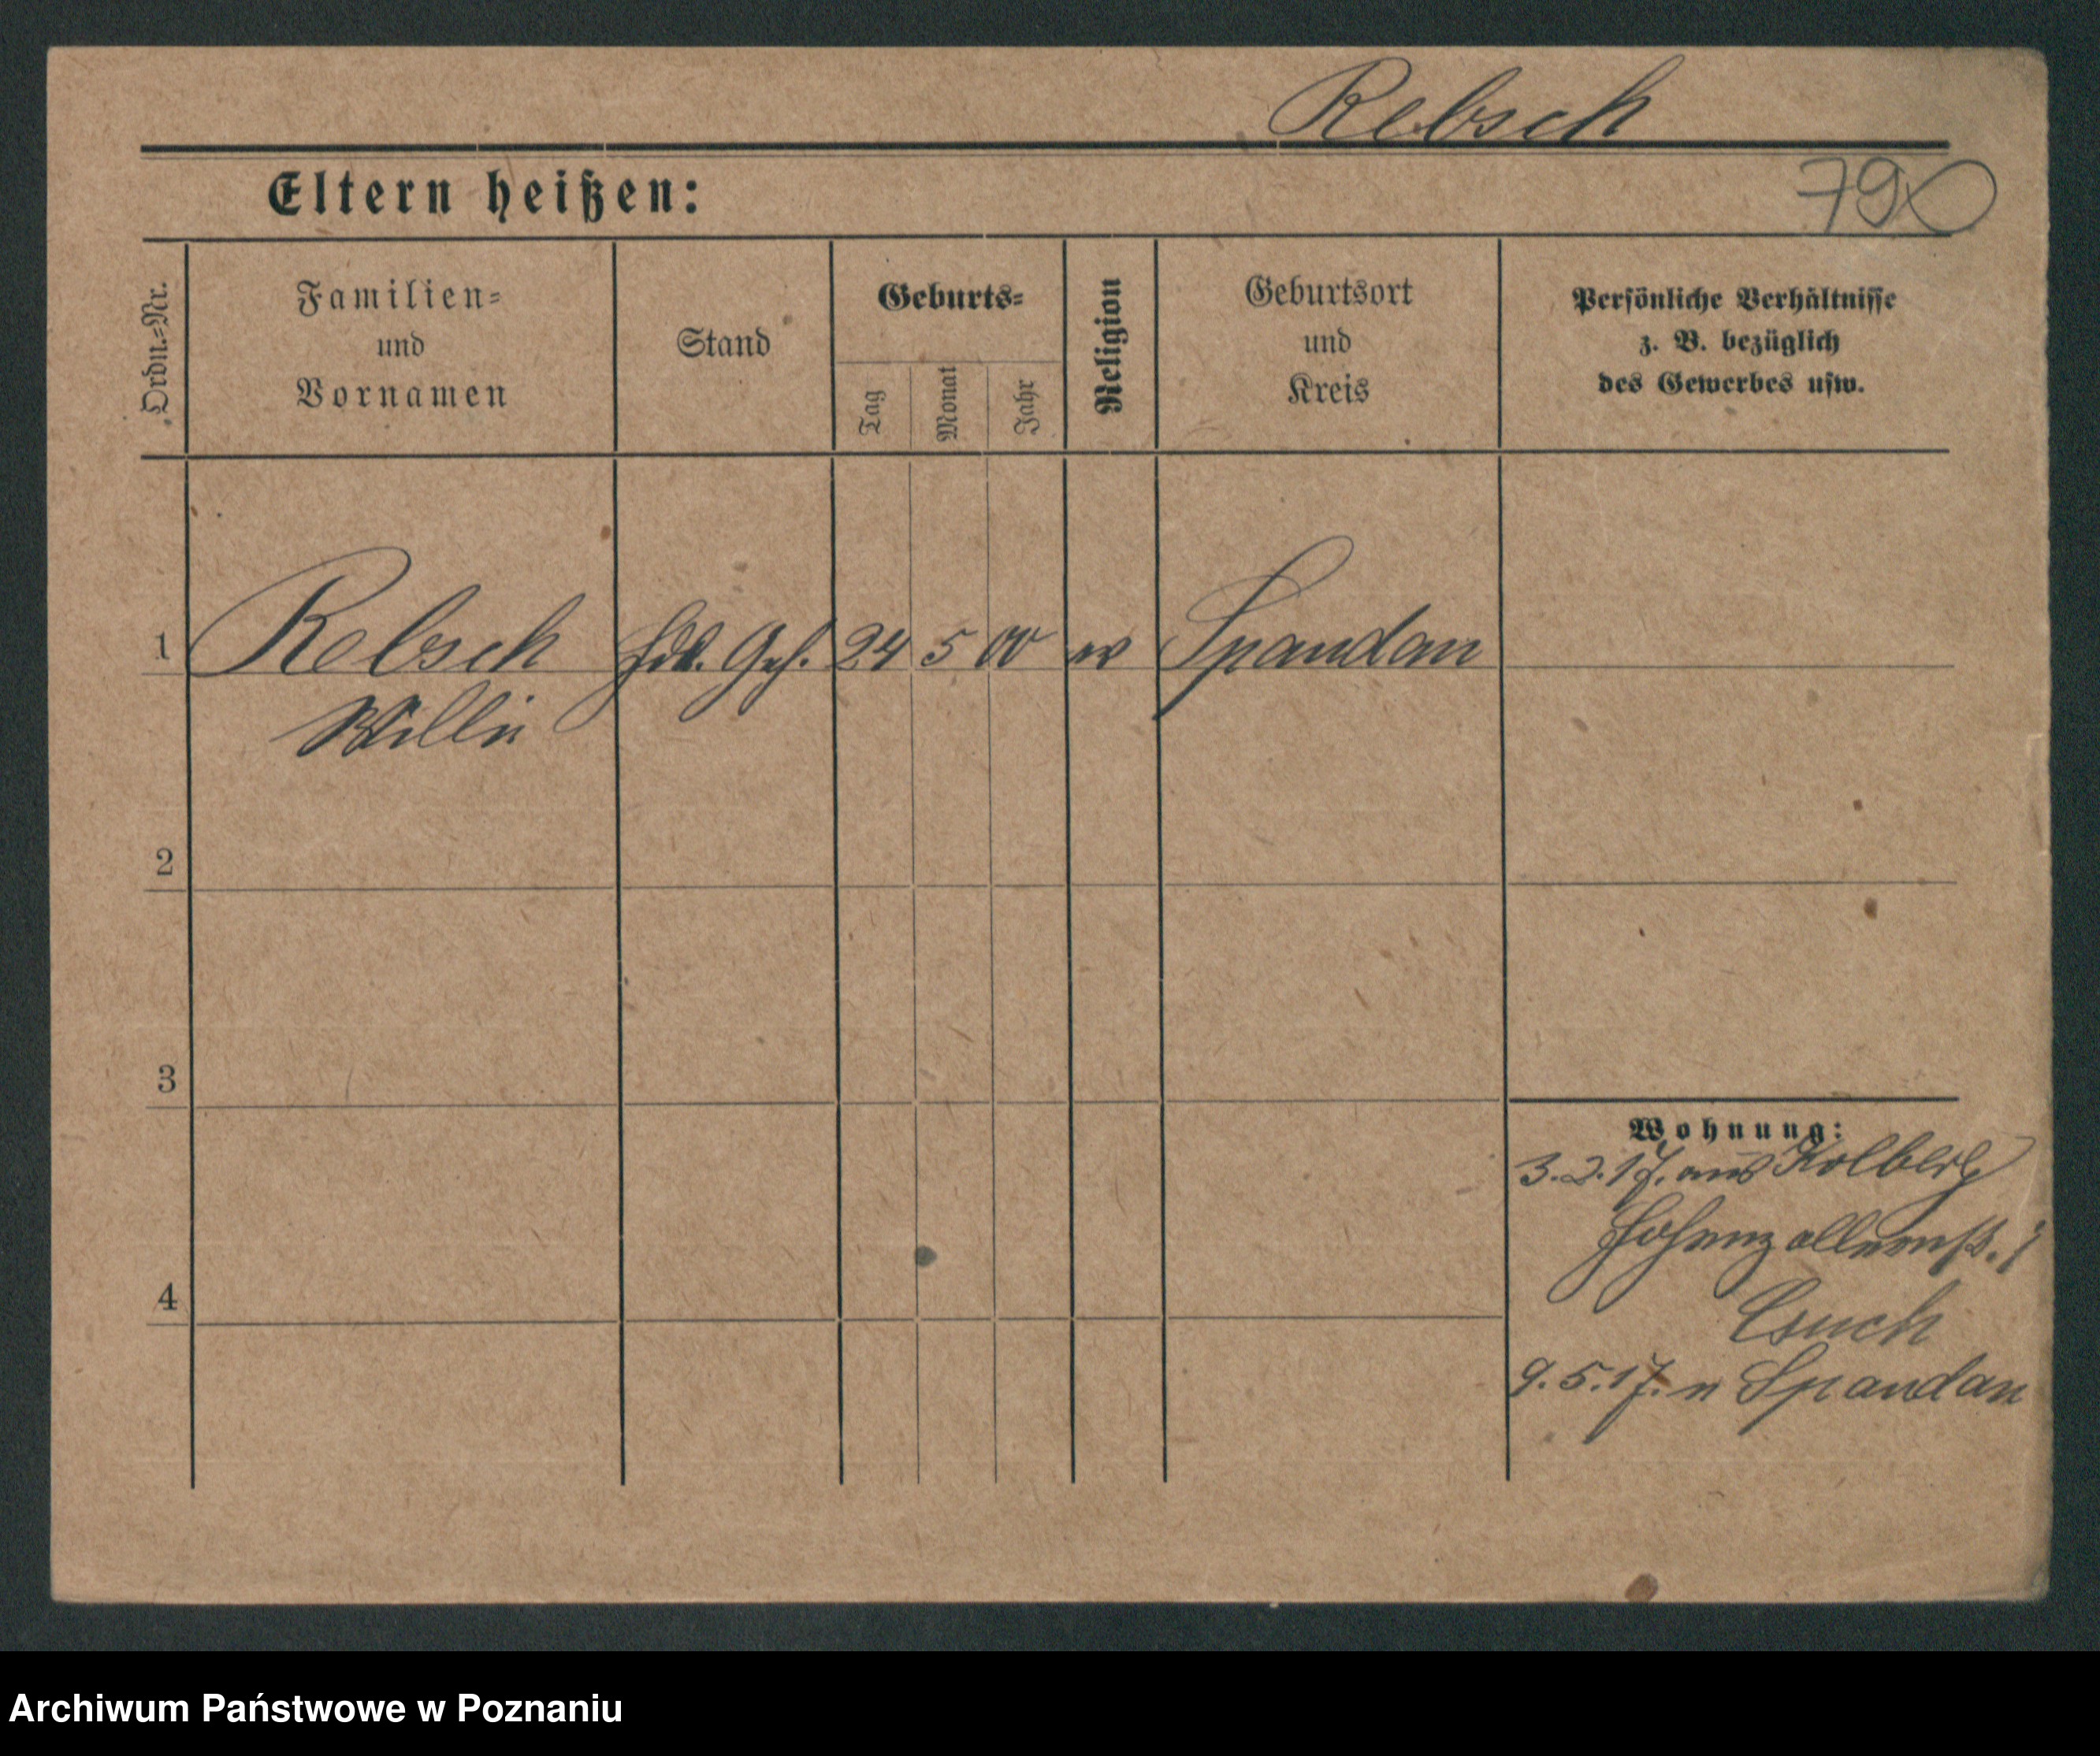 Rebsch
Eltern heißen:
790
Ordn.=Nr.
Familien=
und
Vornamen
Stand
Geburts=
Tag
Monat
Jahr
Religion
Geburtsort
und
Kreis
Persönliche Verhältnisse
z. B. bezüglich
des Gewerbes usw.
1 Rebsch Hdl. Geh. 24 5 00 ev Spandau
Willi
2
3
4
Wohnung:
3.2.17. aus Kolberg
Hohenzollernstr.
9.5.17. n Spandau
Archiwum Państwowe w Poznaniu